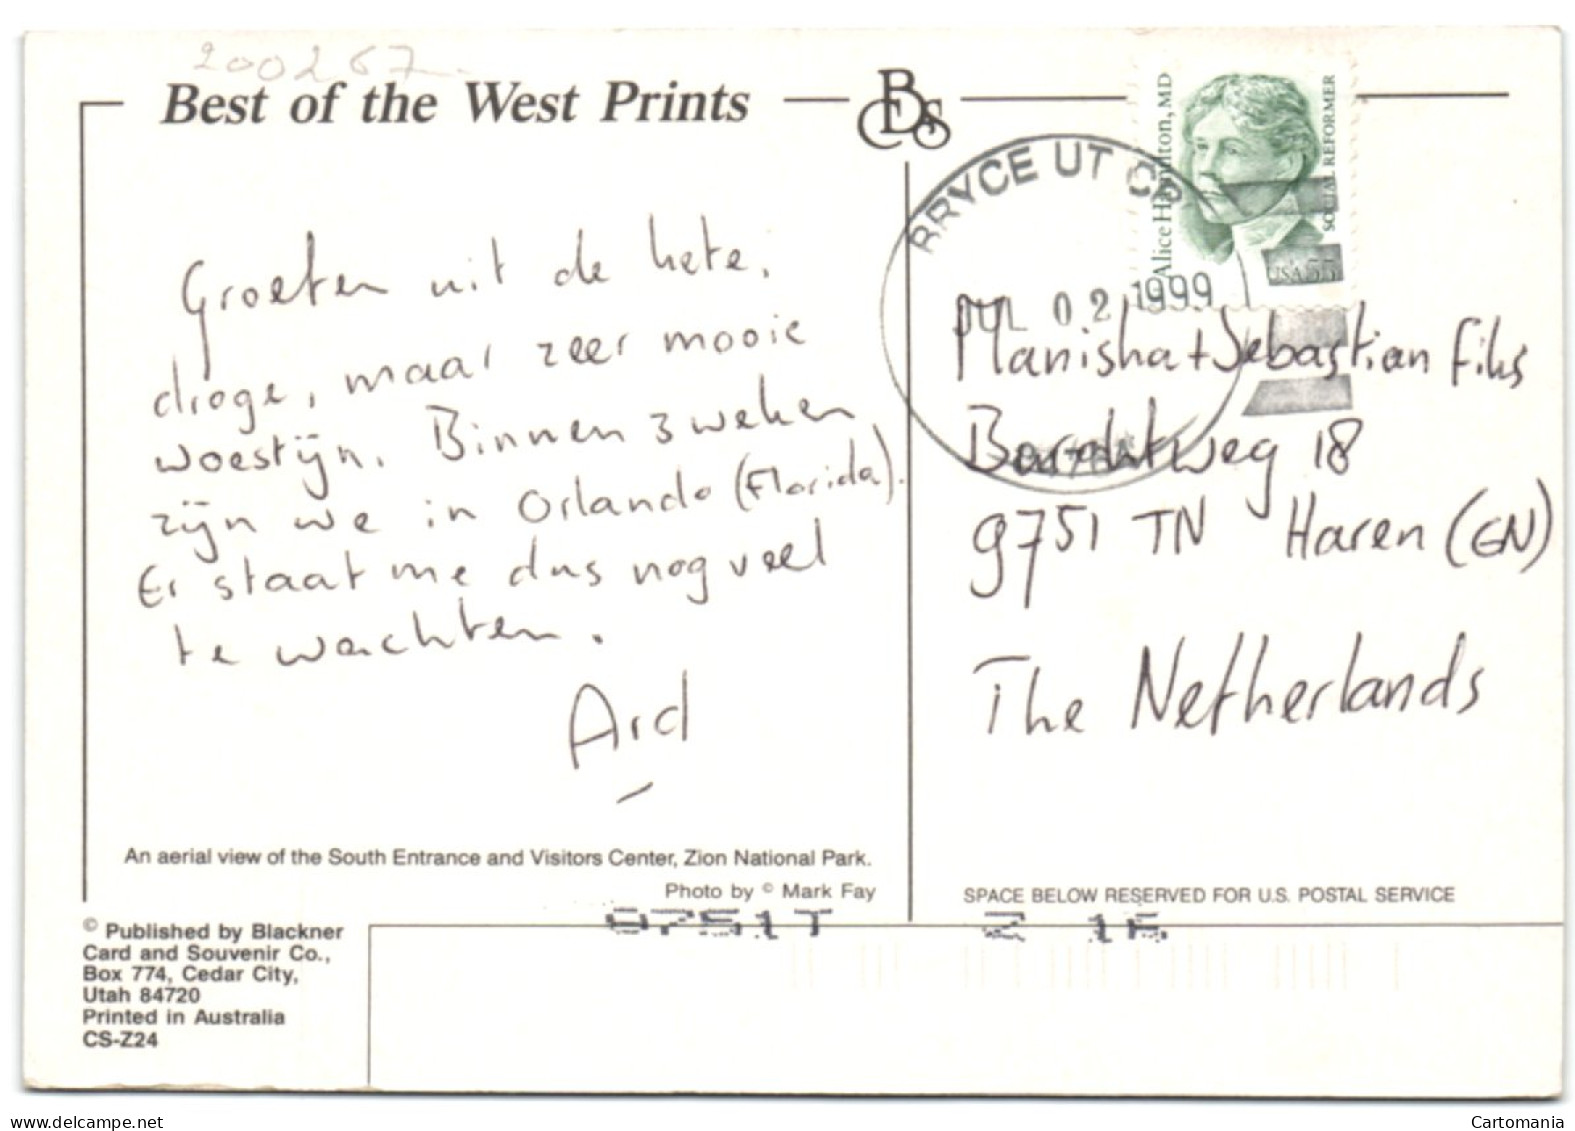 200267
Best of the West Prints
BCS
Alice Hamilton, MD
SOCIAL REFORMER
USA 55
BRYCE UT
JUL 02 1999
Groeten uit de hete,
droge, maar zeer mooie
woestijn. Binnen 3 weken
zijn we in Orlando (Florida).
Er staat me dus nog veel
te wachten.
Ard
Manisha + Sebastian Fiks
18
9751 TN Haren (GN)
The Netherlands
An aerial view of the South Entrance and Visitors Center, Zion National Park.
Photo by © Mark Fay
SPACE BELOW RESERVED FOR U.S. POSTAL SERVICE
© Published by Blackner
Card and Souvenir Co.,
Box 774, Cedar City,
Utah 84720
Printed in Australia
CS-Z24
9751T Z 16
Cartomania